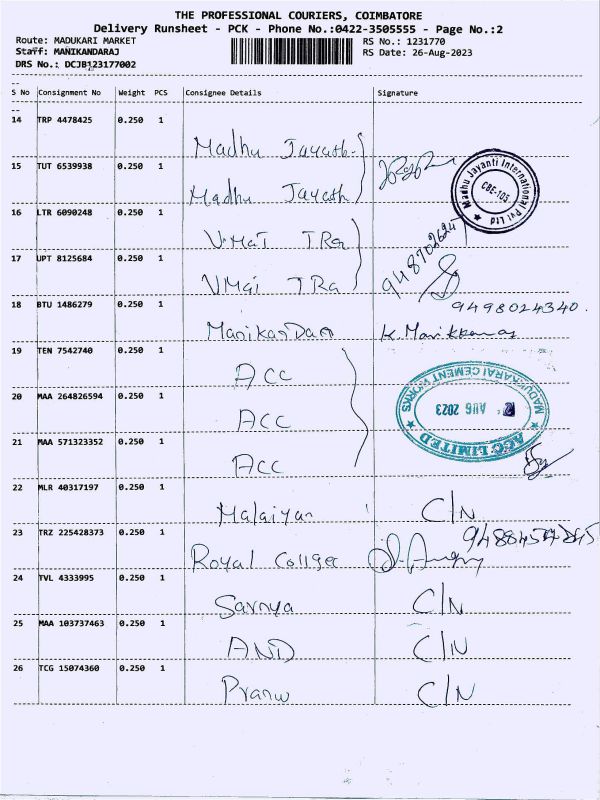 THE PROFESSIONAL COURIERS, COIMBATORE
Delivery Runsheet - PCK - Phone No.:0422-3505555 - Page No.:2
Route: MADUKARI MARKET
RS No.: 1231770
Staff: MANIKANDARAJ
RS Date: 26-Aug-2023
DRS No.: DCJB123177002
S No Consignment No Weight PCS Consignee Details Signature
14 TRP 4478425 0.250 1
Madhu Jayath
15 TUT 6539938 0.250 1
Madhu Jayath
Madhu Jayanti International Pvt Ltd
CBE-105
16 LTR 6090248 0.250 1
VMaT TRa
17 UPT 8125684 0.250 1
VMai TRa
18 BTU 1486279 0.250 1
9498024340.
ManikanDan K.Manikkana
19 TEN 7542740 0.250 1
ACC
20 MAA 264826594 0.250 1
ACC
MADUKKARAI CEMENT WORKS
AUG 2023
ACC LIMITED
21 MAA 571323352 0.250 1
ACC
22 MLR 40317197 0.250 1
Malaiyan C/N
23 TRZ 225428373 0.250 1
Royal College
24 TVL 4333995 0.250 1
Saranya C/N
25 MAA 103737463 0.250 1
AND C/N
26 TCG 15074360 0.250 1
Pranw C/N